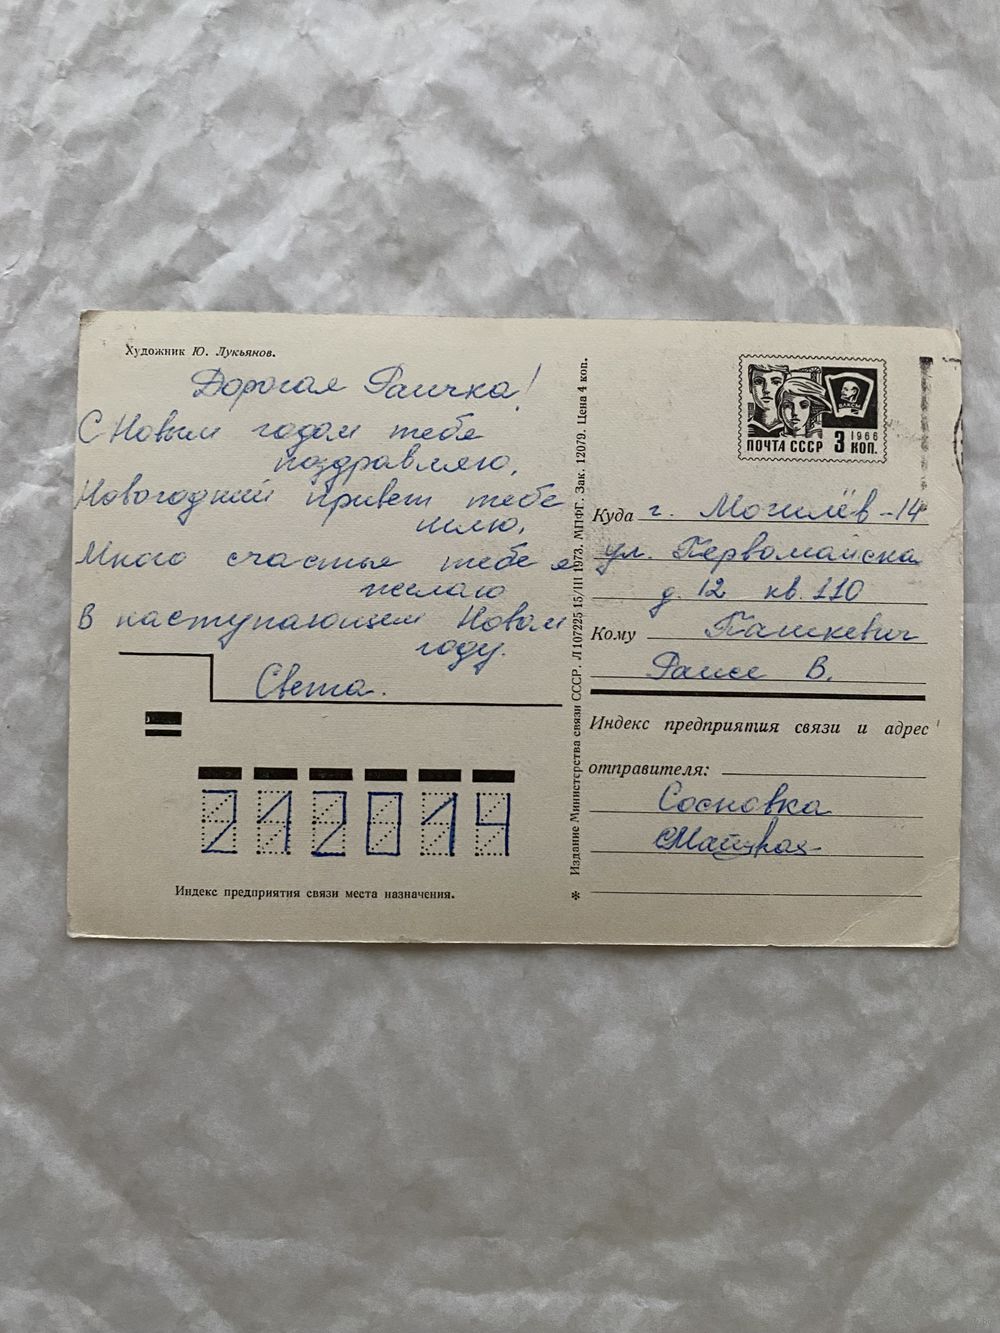 Художник Ю. Лукьянов.
Дорогая Раичка!
С Новым годом тебя
поздравляю,
Новогодний привет тебе
шлю,
Много счастья тебе я
желаю
В наступающем Новом
году.
Света.
212014
Индекс предприятия связи места назначения.
* Издание Министерства связи СССР. Л 107225 15/III 1973. МПФГ. Зак. 12079. Цена 4 коп.
ВЛКСМ
1966
ПОЧТА СССР 3 КОП.
Куда г. Могилёв-14
ул. Первомайска
д. 12 кв. 110
Кому Пашкевич
Раисе В.
Индекс предприятия связи и адрес
отправителя:
Сосновка